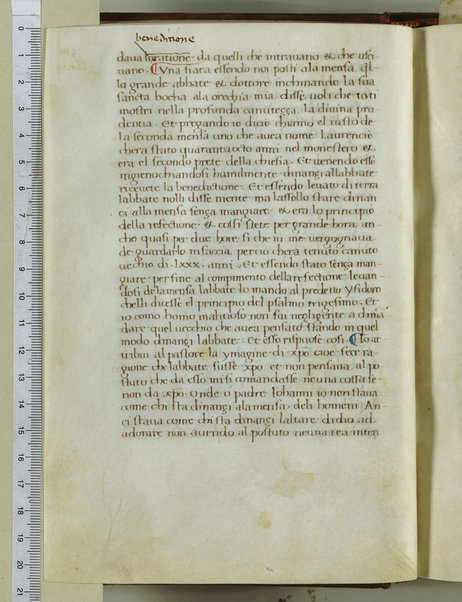 benedicione
daua loratione da quelli che intrauano & che usci
uano. Una fiata essendo noi posti ala mensa q̄l
lo grande abbate & dottore inchinando la sua
sancta bocha ala orechia mia disse uoli che toti
mostri nella profunda canutezza la diuina pru
dentia. Et pregando io dicio chiamo el iusto de
la seconda mensa uno che auea nome Laurencio
chera stato quaranta octo anni nel monestero &
era el secondo prete della chiesia. Et uenendo esse
ingienochiandosi humilmente dinanzi allabbate
riceuete la benedictione. Et essendo leuato di terra
labbate nolli disse mente ma lassollo stare dinan
ci alla mensa senza mangiare & era lo principio
della refectione & cossi stete per grande hora an
cho quasi per due hore si che io me uergognaua
de guardarlo in faccia percio chera tenuto canuto
uechio di .LXXX. anni. Et essendo stato senza man
giare per sine al compimento della refectione leuan
dosi dela mensa labbate lo mando al predetto ysidoro
chelli dicesse el principio del psalmo trigesimo. Et
io como homo malitioso non fui negligente a dima
dare quel uecchio che auea pensato stando in quel
modo dinanzi labbate. Et esso rispuose cosi. Io at
tribui al pastore la ymagine di xp̄o cioe fece ra
gione che labbate fusse xp̄o et non pensaua al po
stuto che da esso mi si comandasse neuna cossa se
non da xp̄o Onde o padre Iohanni io non staua
come chi sta dinanzi ala mensa deli homeni An
ci staua come chi sta dinanzi laltare didio ad
adorare non auendo al postuto neuna rea inten